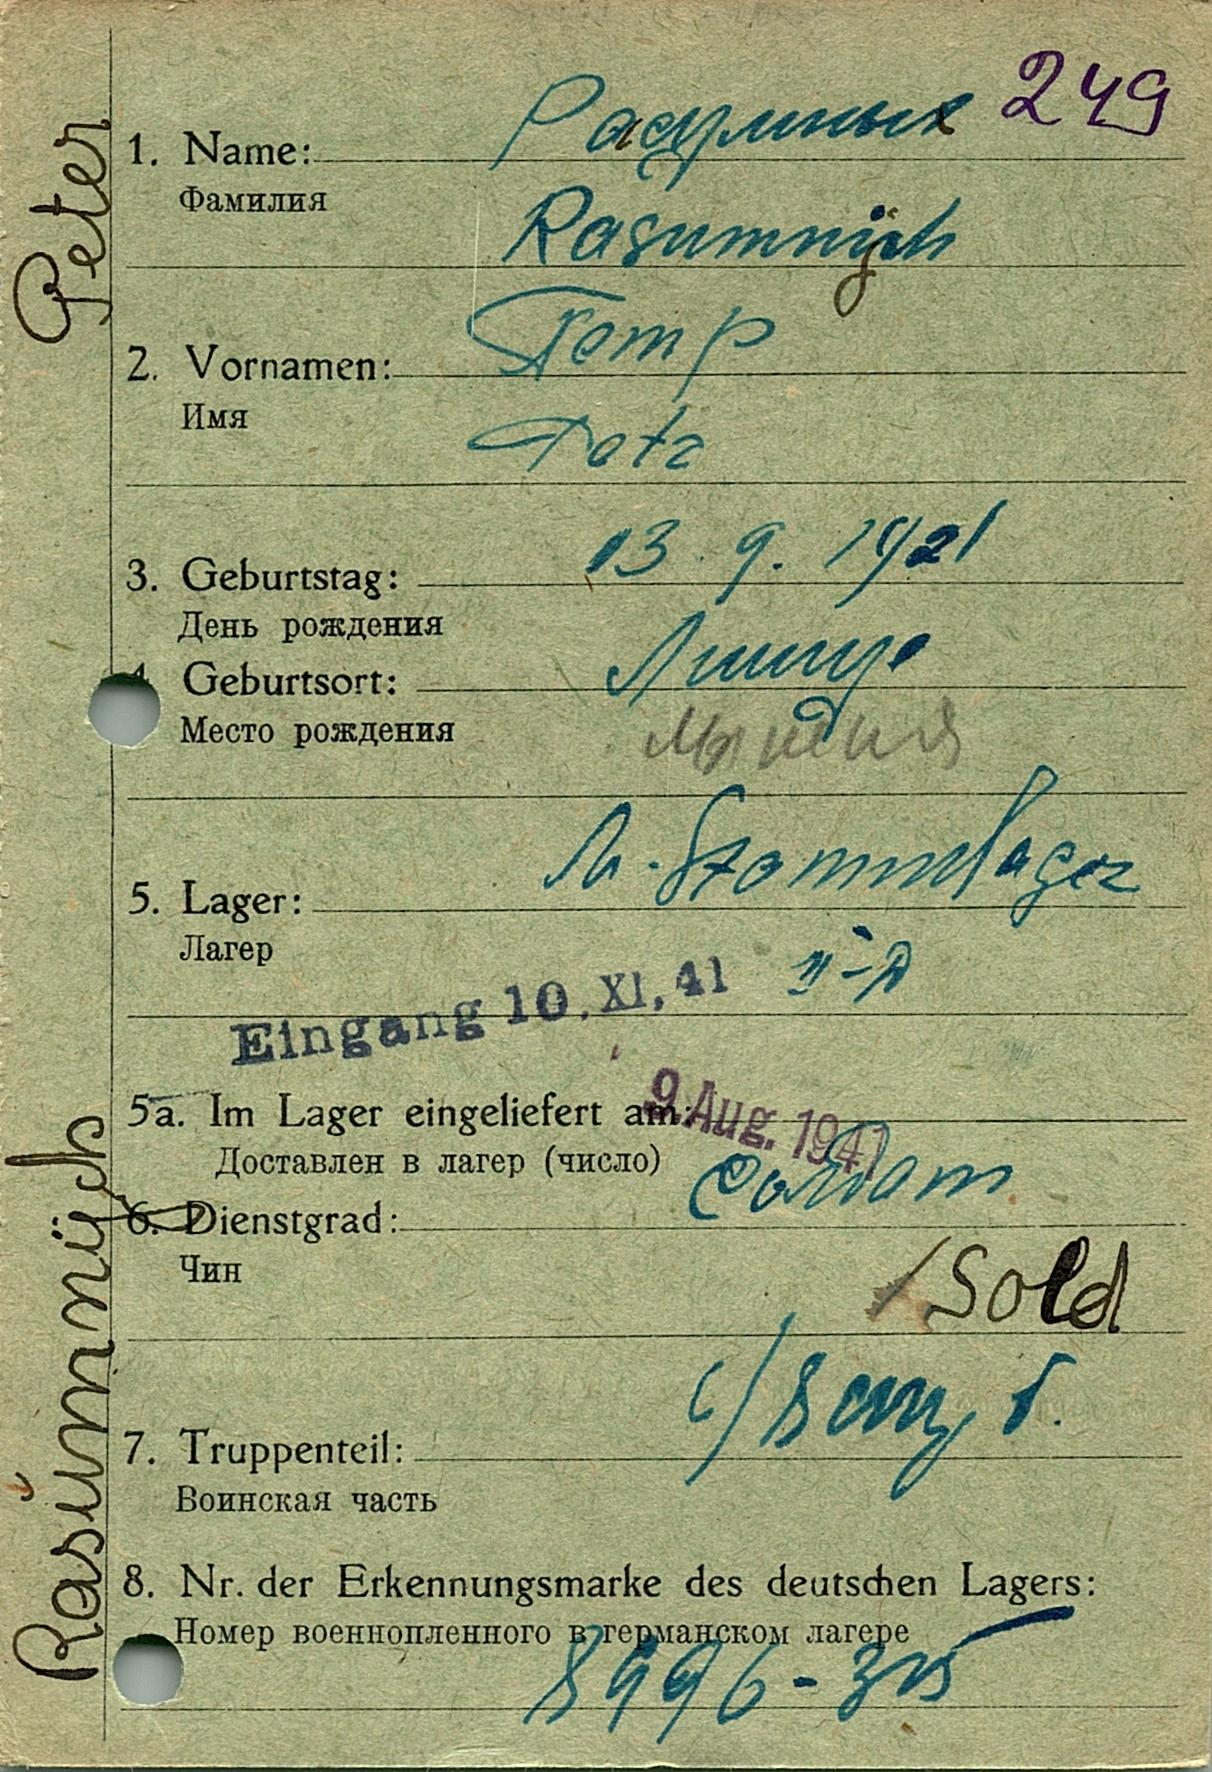 249
Peter
1. Name: Разумных
Фамилия
Rasumnÿch
2. Vornamen: Петр
Имя
Petr
3. Geburtstag: 13. 9. 1921
День рождения
4. Geburtsort:
Место рождения
5. Lager: M.-Stammlager
Лагер
II-A
Eingang 10. XI. 41
5a. Im Lager eingeliefert am: 9. Aug. 1941
Доставлен в лагер (число)
6. Dienstgrad: Солдат
Чин
Sold
7. Truppenteil:
Воинская часть
8. Nr. der Erkennungsmarke des deutschen Lagers:
Номер военнопленного в германском лагере
8996-315
Rasumnÿch